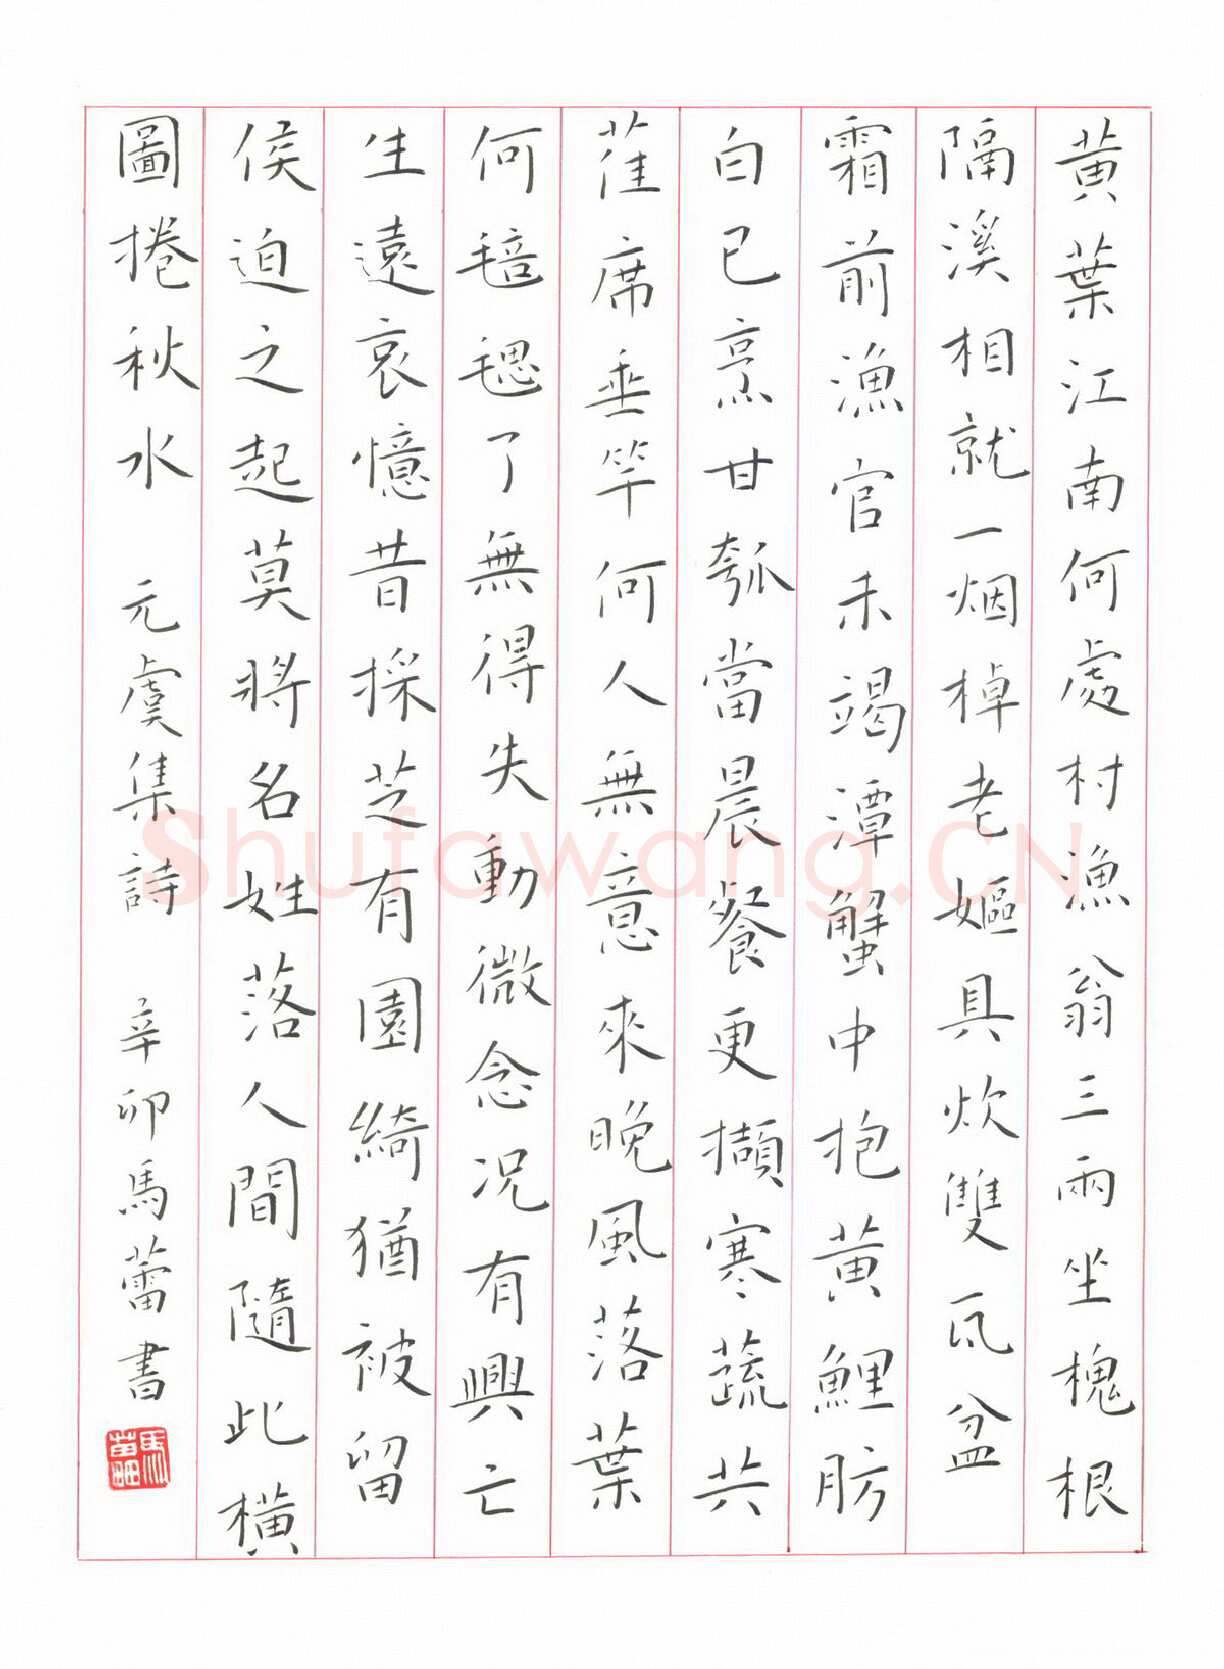 黄葉江南何處村漁翁三兩坐槐根
隔溪相就一烟棹老嫗具炊雙瓦盆
霜前漁官未竭潭蟹中抱黄鯉肪
白已烹甘瓠當晨餐更擷寒蔬共
萑席垂竿何人無意來晚風落葉
何毰毸了無得失動微念况有興亡
生遠哀憶昔採芝有園綺猶被留
侯迫之起莫將名姓落人間隨此橫
圖捲秋水 元虞集詩 辛卯馬蕾書
馬蕾
Shufawang.CN